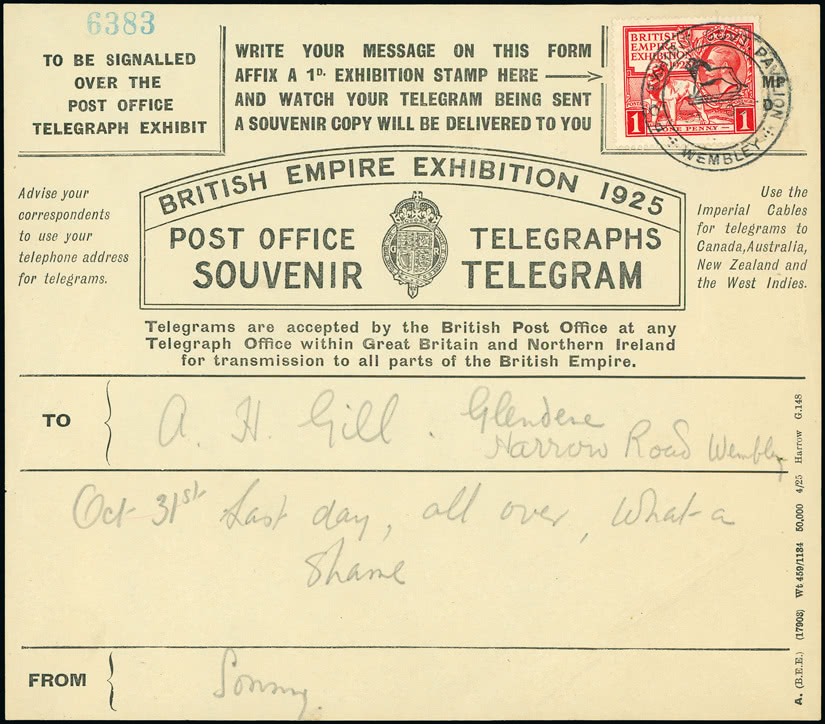 6383
TO BE SIGNALLED
OVER THE
POST OFFICE
TELEGRAPH EXHIBIT
WRITE YOUR MESSAGE ON THIS FORM
AFFIX A 1D. EXHIBITION STAMP HERE
AND WATCH YOUR TELEGRAM BEING SENT
A SOUVENIR COPY WILL BE DELIVERED TO YOU
BRITISH
EMPIRE
EXHIBITION
1925
1 ONE PENNY 1
PAVILION
WEMBLEY
Advise your
correspondents
to use your
telephone address
for telegrams.
BRITISH EMPIRE EXHIBITION 1925
POST OFFICE TELEGRAPHS
SOUVENIR TELEGRAM
G R
Use the
Imperial Cables
for telegrams to
Canada, Australia,
New Zealand and
the West Indies.
Telegrams are accepted by the British Post Office at any
Telegraph Office within Great Britain and Northern Ireland
for transmission to all parts of the British Empire.
TO
A. H. Gill. Glendene
Harrow Road Wembley
Oct 31st Last day, all over, What a
Shame
FROM
Sonny.
A. (B.E.E.) (17903) Wt 459/1134 50,000 4/25 Harrow G.148